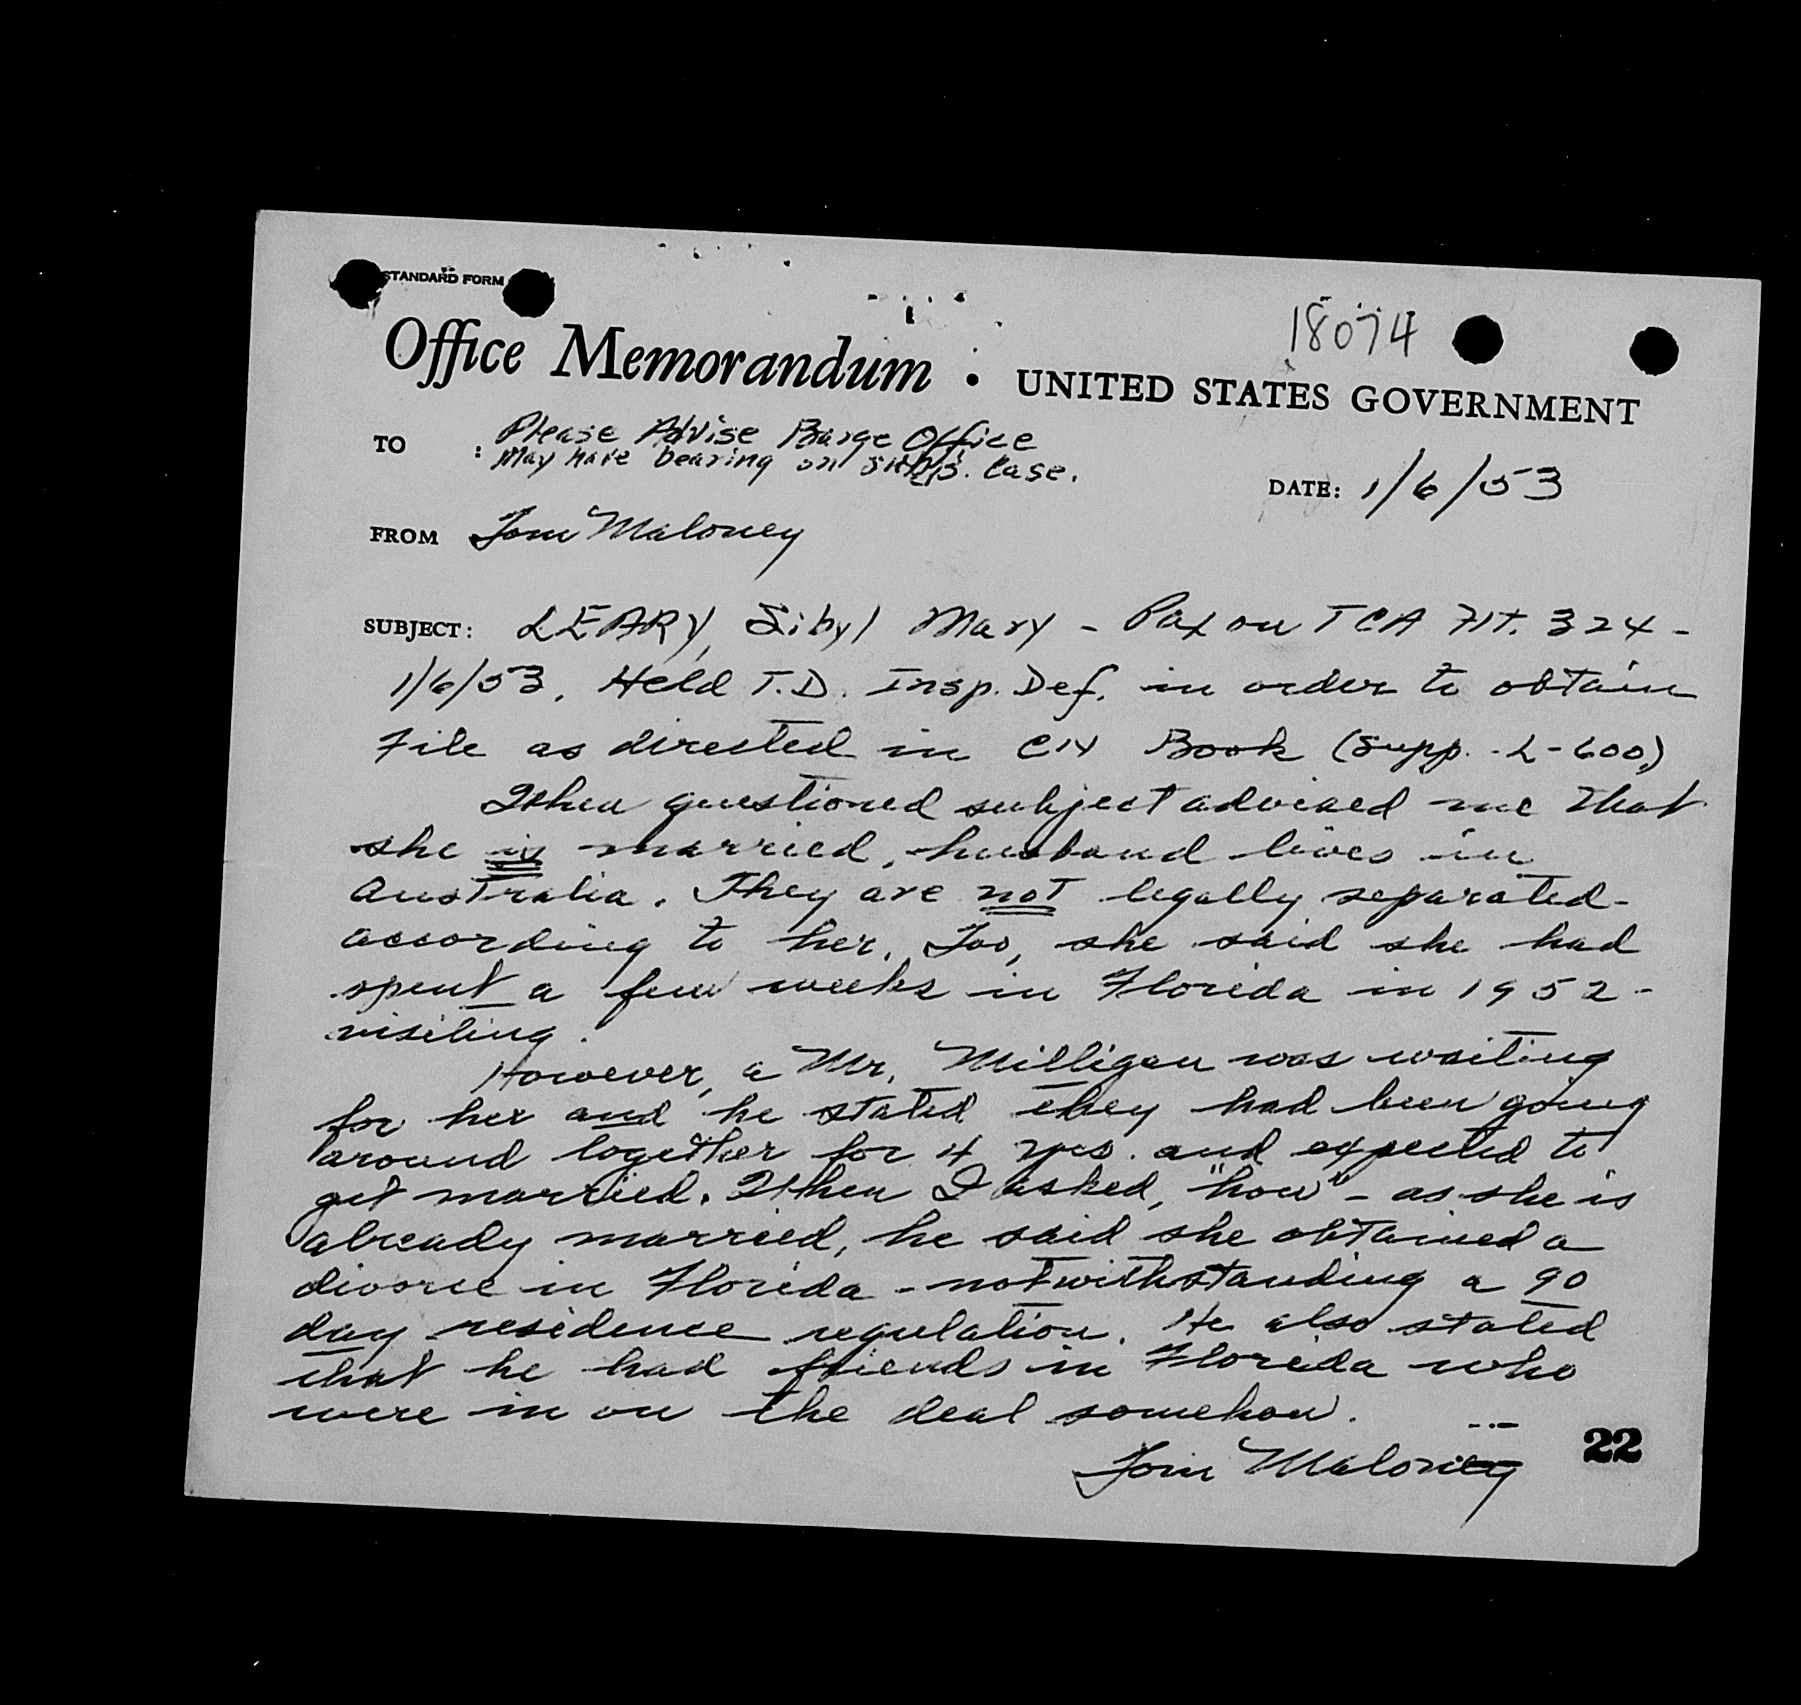 STANDARD FORM
18074
Office Memorandum • UNITED STATES GOVERNMENT
TO : Please Advise Barge Office
May have bearing on subj's. Case.
DATE: 1/6/53
FROM Tom Maloney
SUBJECT: LEARY, Sibyl Mary - Pax on TCA Flt. 324 -
1/6/53. Held T.D. Insp. Def. in order to obtain
File as directed in Book (Supp. - L-600.)
When questioned subject advised me that
she is married, husband lives in
Australia. They are not legally separated -
according to her. Too, she said she had
spent a few weeks in Florida in 1952 -
visiting.
However, a Mr. Milligan was waiting
for her and he stated they had been going
around together for 4 yrs. and expected to
get married. When I asked, "how" - as she is
already married, he said she obtained a
divorce in Florida - notwithstanding a 90
day residence regulation. He also stated
that he had friends in Florida who
were in on the deal somehow.
Tom Maloney
22